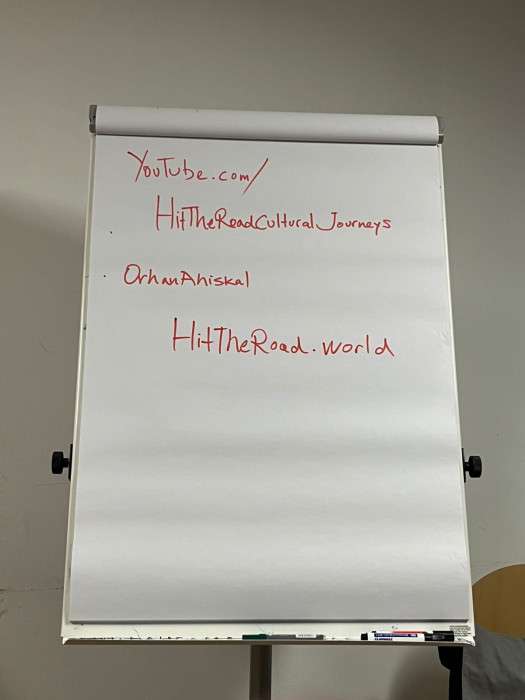 YouTube.com/
HitTheRoadCulturalJourneys
OrhanAhiskal
HitTheRoad.world